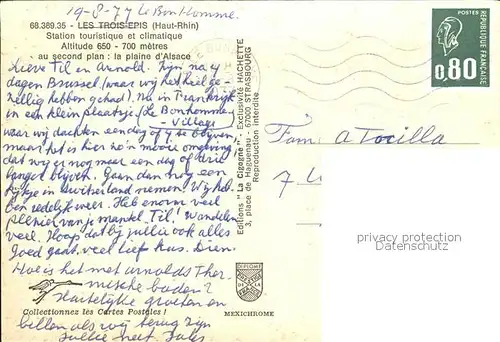 19-8-77 Le Bonhomme.
68.389.35 - LES TROIS-EPIS (Haut-Rhin)
Station touristique et climatique
Altitude 650 - 700 mètres
- au second plan : la plaine d'Alsace
Lieve Til en Arnold. Zijn na 4
dagen Brussel (waar wij het heel ge-
zellig hebben gehad). Nu in Frankrijk
in een klein plaatsje (Le Bonhomme
- Village)
waar wij dachten een dag of te blijven,
maar het is hier zo'n mooie omgeving,
dat wij er nog maar een dag of drie
langer blijven. Gaan dan nog een
kijkje in Zwitserland nemen. Wij heb-
ben redelijk weer. Heb enorm veel
plezier van je mantel, Til! Wandelen
veel. Hoop dat bij jullie ook alles
goed gaat. Veel lief kus. Dien.
Hoe is het met Arnolds Ther-
mische baden?
Hartelijke groeten en
bellen als wij terug zijn
Jullie
Collectionnez les Cartes Postales !
MEXICHROME
DIPLOME
Editions "La Cigogne" - Exclusivité HACHETTE
3, place de Haguenau - 67000 STRASBOURG
Reproduction interdite
POSTES
0,80
REPUBLIQUE FRANÇAISE
Fam. A
7
privacy protection
Datenschutz